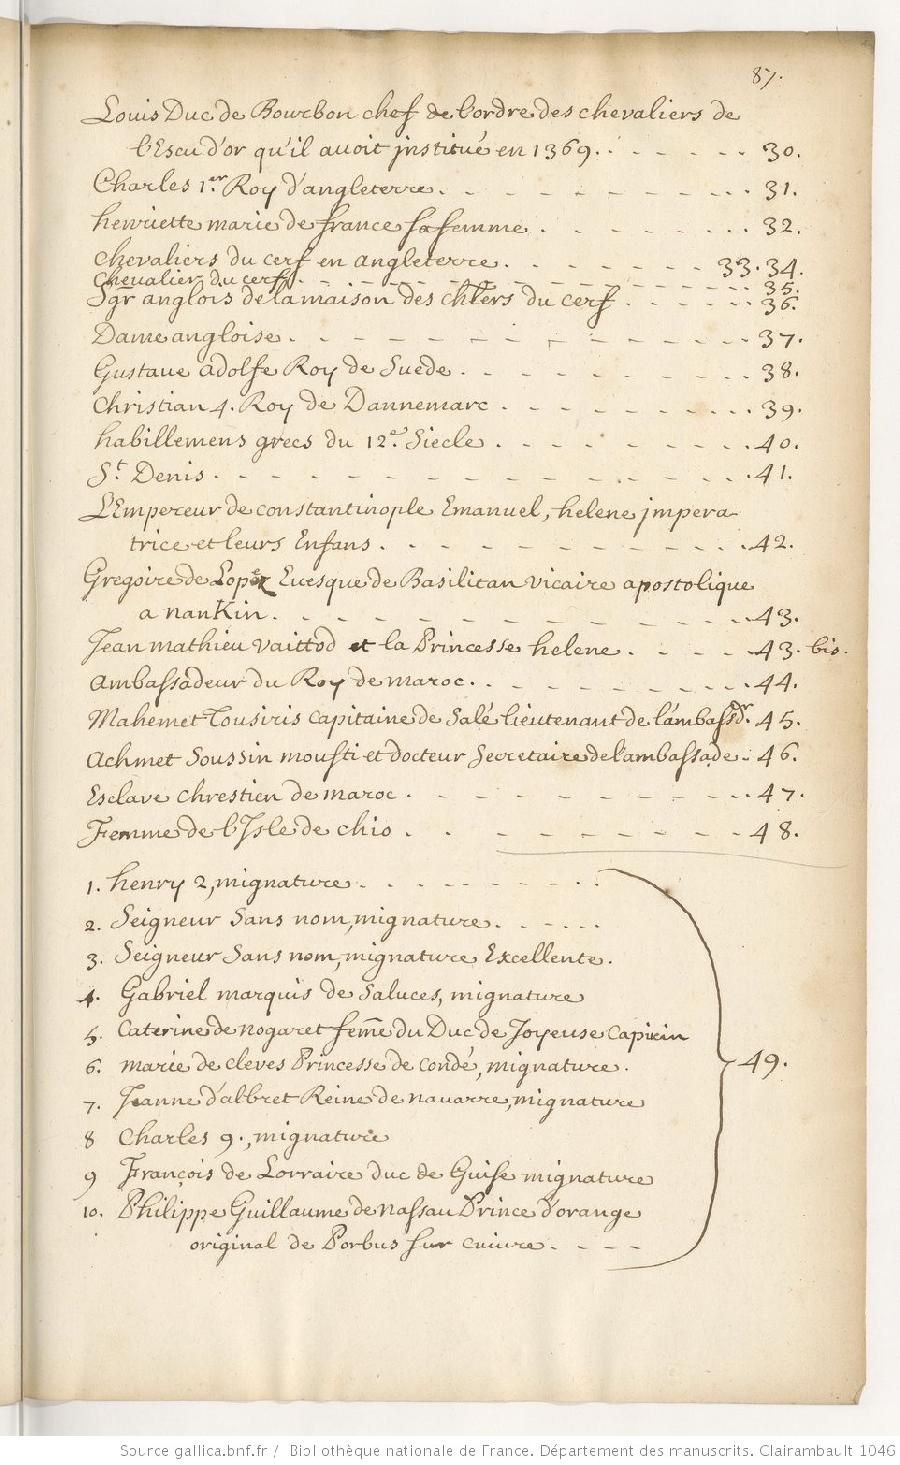 87.
Louis Duc de Bourbon chef de l'ordre des chevaliers de
l'Escu d'or qu'il auoit jnstitué en 1369. 30.
Charles 1.er Roy d'angleterre. 31.
henriette marie de france sa femme. 32.
chevaliers du cerf en angleterre. 33. 34.
chevalier du cerf. 35.
Sgr anglois de la maison des chlers du cerf. 36.
Dame angloise. 37.
Gustaue adolfe Roy de Suede. 38.
Christian 4. Roy de Dannemarc. 39.
habillemens grecs du 12.e Siecle. 40.
St. Denis. 41.
L'Empereur de constantinople Emanuel, helene jmpera-
trice et leurs Enfans. 42.
Gregoire de Lopez Euesque de Basilitan vicaire apostolique
a nanKin. 43.
Jean mathieu vaittod et la Princesse helene. 43. bis.
ambassadeur du Roy de maroc. 44.
Mahemet Tousiris capitaine de Salé lieutenant de l'ambassdr. 45.
Achmet Soussin moufti et docteur Secretaire de l'ambassade. 46.
Esclave chrestien de maroc. 47.
Femme de l'Isle de chio. 48.
1. henry 2, mignature.
2. Seigneur Sans nom, mignature.
3. Seigneur Sans nom, mignature Excellente.
4. Gabriel marquis de Saluces, mignature
5. Caterine de nogaret feme du Duc de Joyeuse capucin
6. marie de cleves Princesse de condé, mignature. 49.
7. Jeanne d'albret Reine de nauarre, mignature
8 Charles 9., mignature
9 François de Lorraire duc de Guise mignature
10. Philippe Guillaume de nassau Prince d'orange
original de Porbus sur cuiure.
Source gallica.bnf.fr / Bibliothèque nationale de France. Département des manuscrits. Clairambault 1046